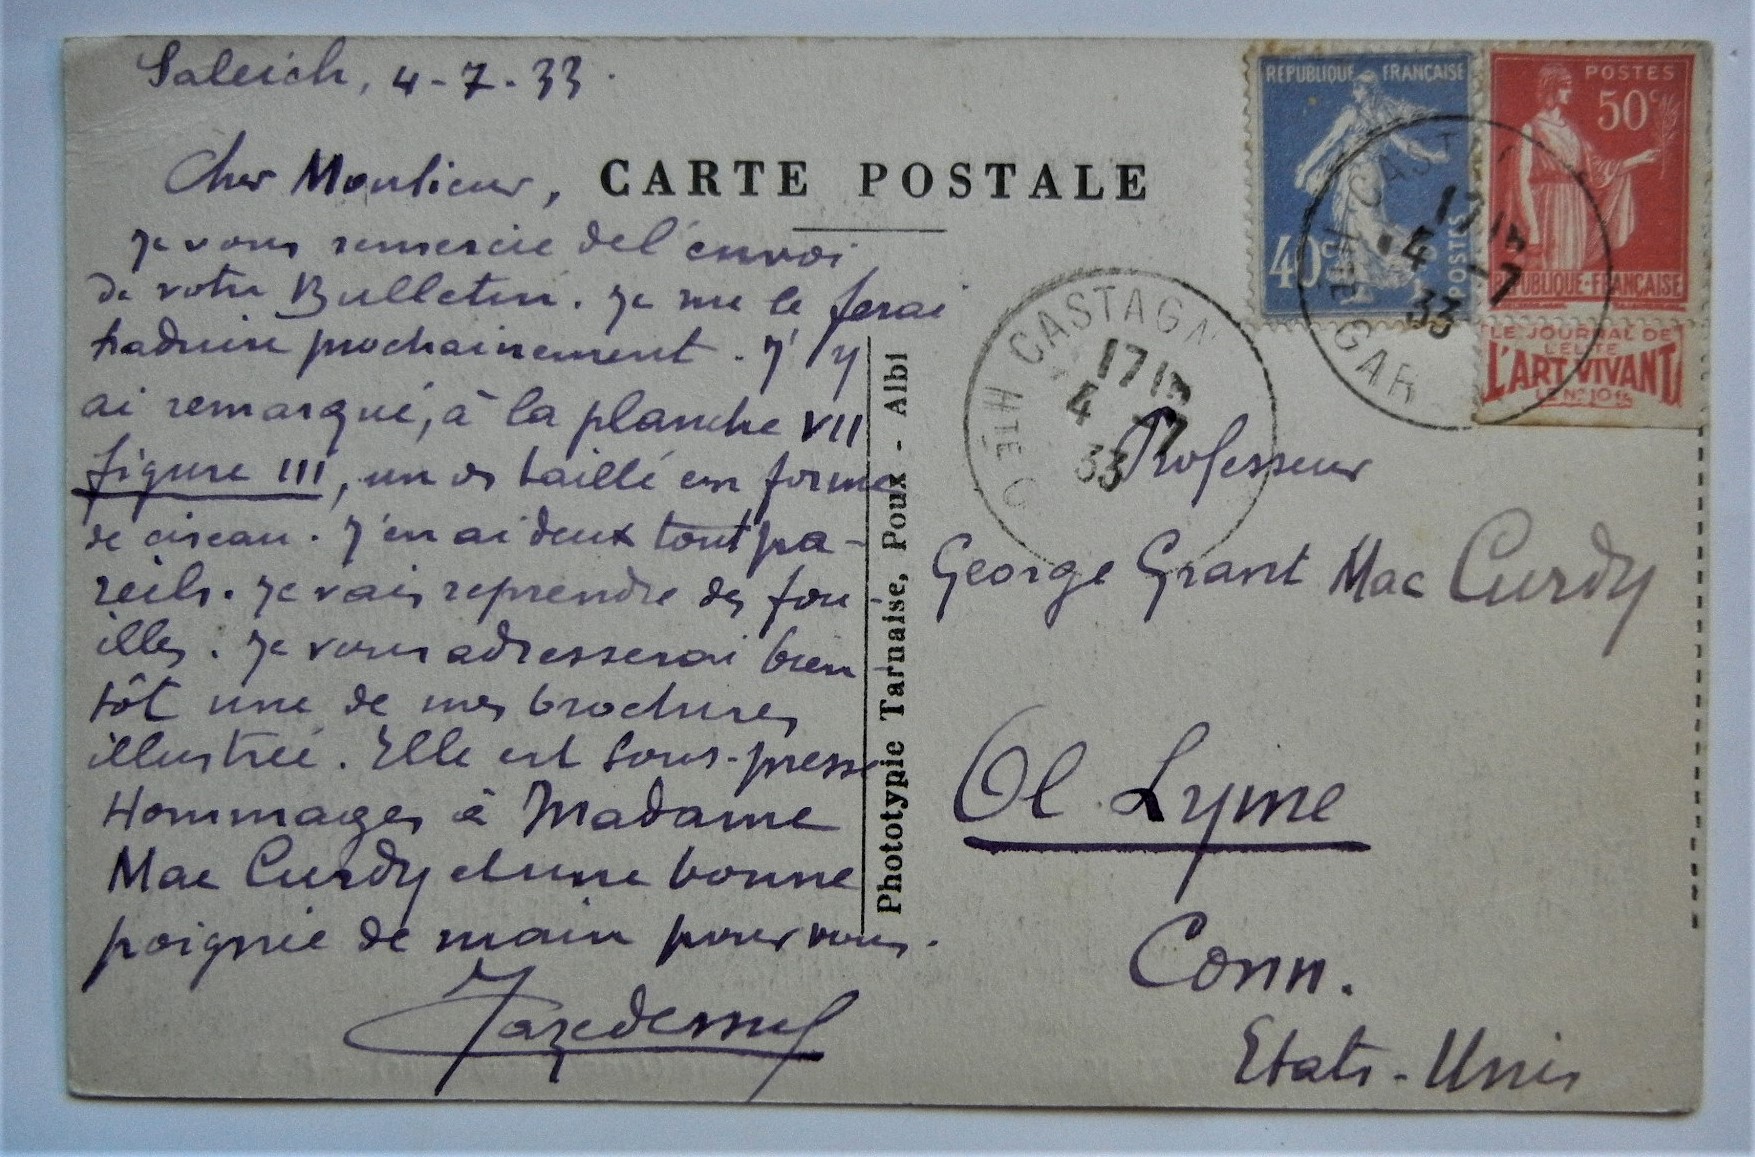 Saleich, 4-7-33.
Cher Monsieur,
CARTE POSTALE
je vous remercie de l'envoi
de votre Bulletin. Je me le ferai
traduire prochainement. J'y
ai remarqué, à la planche VII
figure III, un os taillé en forme
de ciseau. J'en ai deux tout pa-
reils. Je vais reprendre des fou-
illes. Je vous adresserai bien-
tôt une de mes brochures
illustrée. Elle est sous-presse
Hommages à Madame
Mac Curdy et une bonne
poignée de main pour vous.
Cazedessus
Phototypie Tarnaise, Poux - Albi
REPUBLIQUE FRANÇAISE
40c
POSTES
POSTES
50c
REPUBLIQUE-FRANÇAISE
LE JOURNAL DE
L'ELITE
L'ART VIVANT
LE No 10 frs
CAST
HTE
GAR
17
4 -7
33
CASTAGN
HTE
G
17
4 -7
33
Professeur
George Grant Mac Curdy
Ol. Lyme
Conn.
Etats-Unis